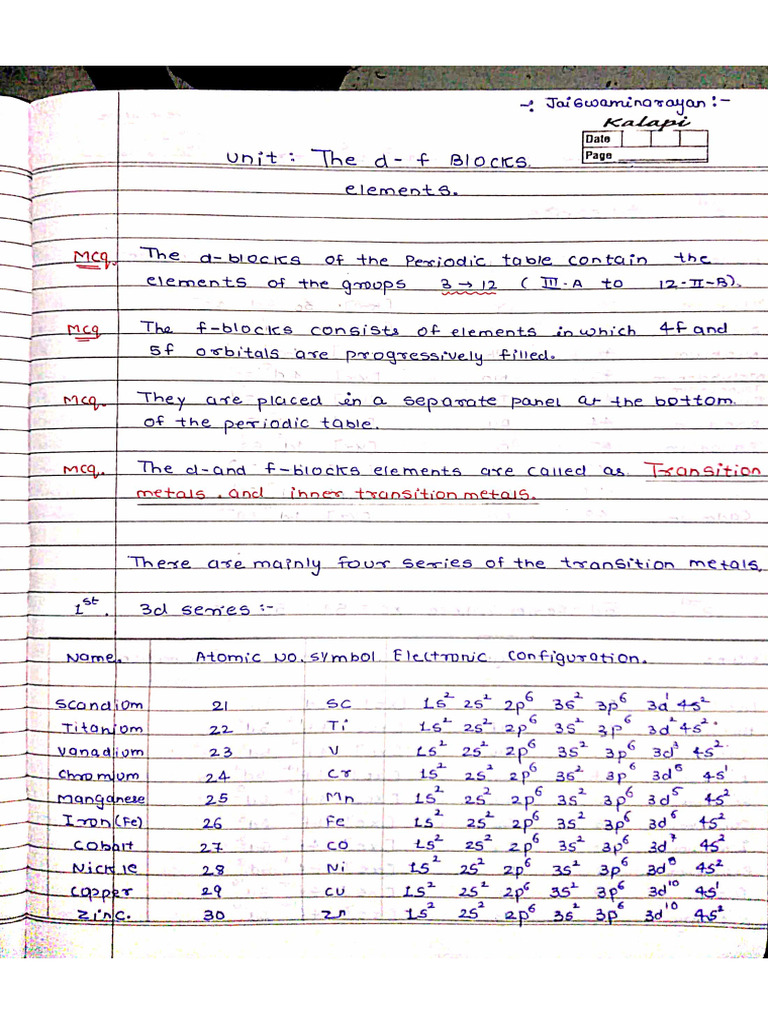 -: Jaiswaminarayan :-
Kalapi
Date
Page
Unit : The d-f Blocks
elements.
Mcq. The d-blocks of the Periodic table contain the
elements of the groups 3 → 12 ( III-A to 12-II-B).
Mcq The f-blocks consists of elements in which 4f and
5f orbitals are progressively filled.
Mcq. They are placed in a separate panel at the bottom
of the periodic table.
Mcq. The d-and f-blocks elements are called as Transition
metals and inner transition metals.
There are mainly four series of the transition metals.
1st. 3d series :-
Name. Atomic No. Symbol Electronic Configuration.
Scandiom 21 Sc 1s² 2s² 2p⁶ 3s² 3p⁶ 3d¹ 4s²
Titaniom 22 Ti 1s² 2s² 2p⁶ 3s² 3p⁶ 3d² 4s²
Vanadium 23 V 1s² 2s² 2p⁶ 3s² 3p⁶ 3d³ 4s²
Chromium 24 Cr 1s² 2s² 2p⁶ 3s² 3p⁶ 3d⁵ 4s¹
Manganese 25 Mn 1s² 2s² 2p⁶ 3s² 3p⁶ 3d⁵ 4s²
Iron (Fe) 26 Fe 1s² 2s² 2p⁶ 3s² 3p⁶ 3d⁶ 4s²
Cobalt 27 CO 1s² 2s² 2p⁶ 3s² 3p⁶ 3d⁷ 4s²
Nickle 28 Ni 1s² 2s² 2p⁶ 3s² 3p⁶ 3d⁸ 4s²
Copper 29 CU 1s² 2s² 2p⁶ 3s² 3p⁶ 3d¹⁰ 4s¹
Zinc. 30 Zn 1s² 2s² 2p⁶ 3s² 3p⁶ 3d¹⁰ 4s²